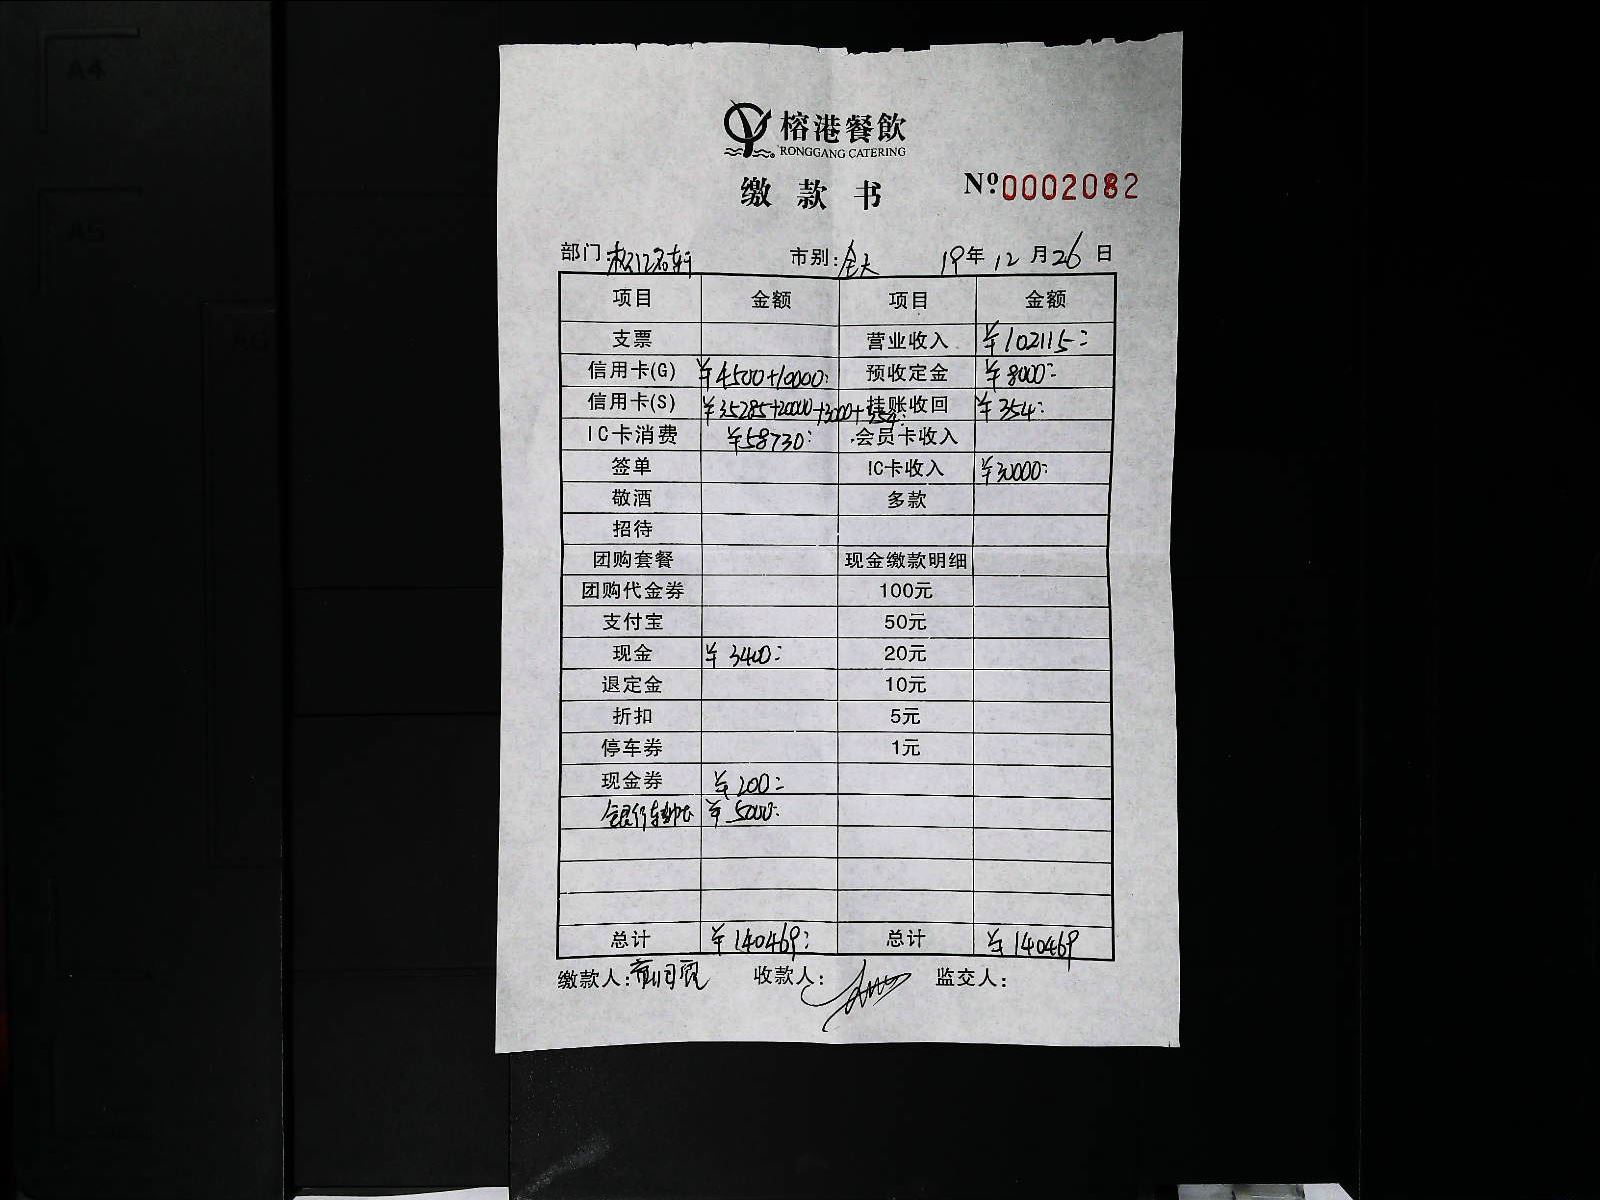 A4
A5
A6
榕港餐飲
RONGGANG CATERING
缴款书 Nº 0002082
部门: 市别:全天 19年12月26日
项目 金额 项目 金额
支票 营业收入 ¥102115:
信用卡(G) ¥4500+10000: 预收定金 ¥8000:
信用卡(S) ¥35285+20000+3000+354: 挂账收回 ¥354:
IC卡消费 ¥58730: 会员卡收入
签单 IC卡收入 ¥30000:
敬酒 多款
招待
团购套餐 现金缴款明细
团购代金券 100元
支付宝 50元
现金 ¥3400: 20元
退定金 10元
折扣 5元
停车券 1元
现金券 ¥200:
银行转帐 ¥5000:
总计 ¥140469: 总计 ¥140469
缴款人: 收款人: 监交人: